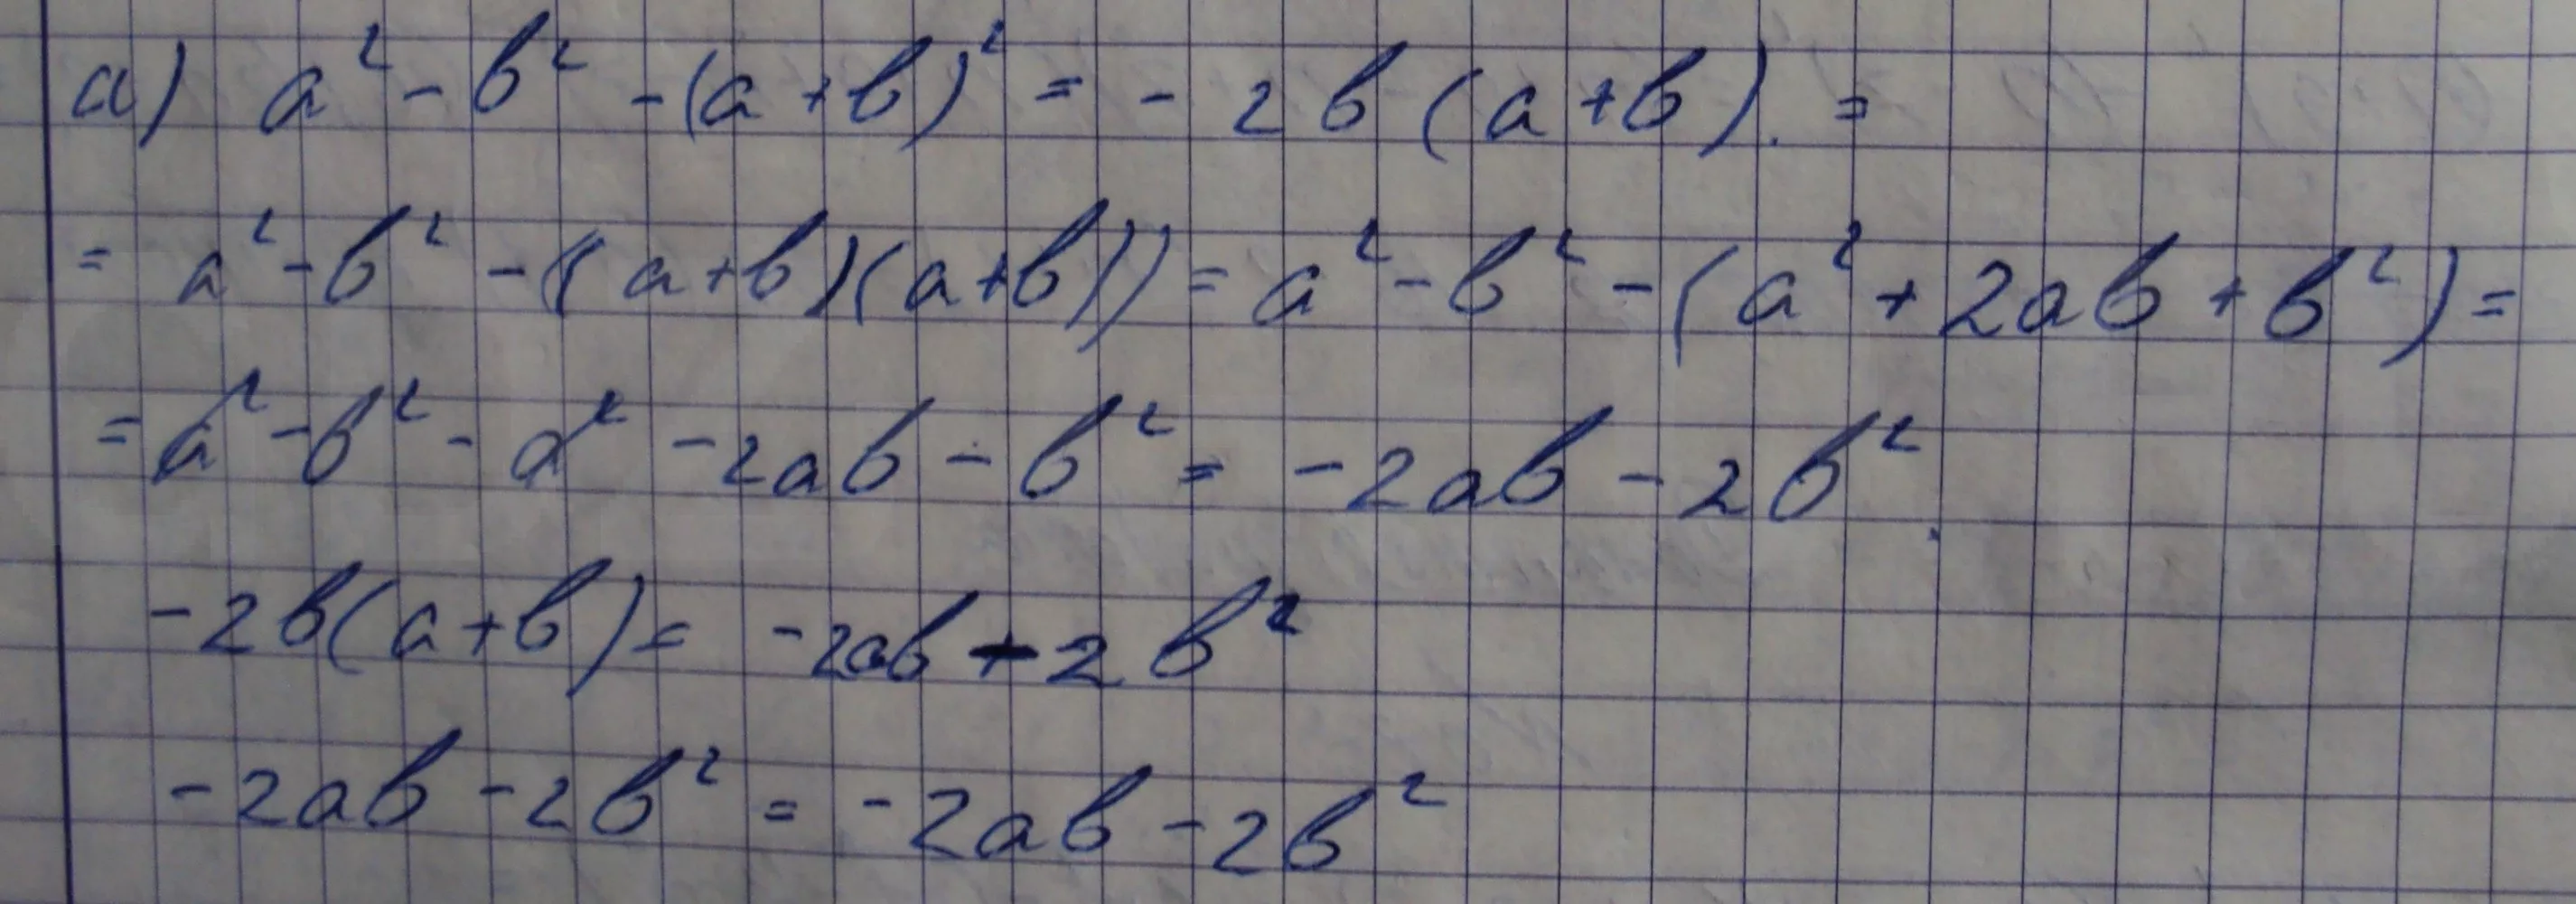 а) a² - b² - (a + b)² = - 2b(a + b). =
= a² - b² - ((a+b)(a+b)) = a² - b² - (a² + 2ab + b²) =
= a² - b² - a² - 2ab - b² = - 2ab - 2b².
- 2b(a+b) = - 2ab - 2b²
- 2ab - 2b² = - 2ab - 2b²